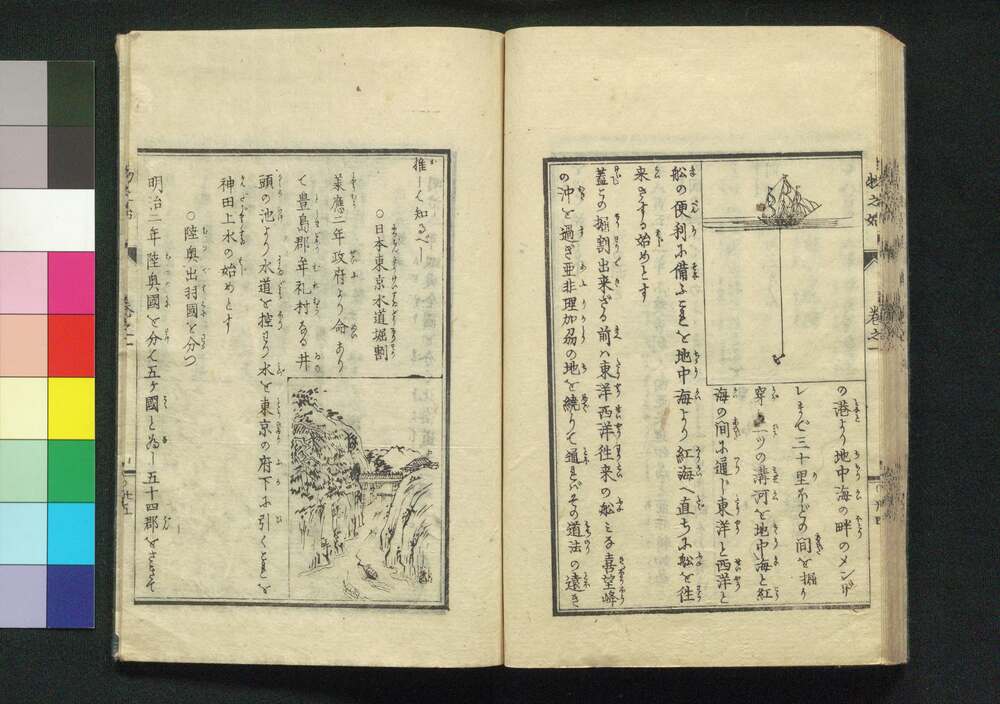 の港より地中海の畔のメンザ
レまで三十里ほどの間を掘り
穿ち一ツの溝河を地中海と紅
海の間に通じ東洋と西洋と
船の便利に備ふこれを地中海より紅海へ直ちに船を徃
来さする始めとす
蓋この掘割出来ざる前ハ東洋西洋徃来の船ミな喜望峰
の沖を過ぎ亜非理加洲の地を繞りて通れバその道法の遠き
卷之一
推して知るべし
○日本東京水道堀割
承應二年政府より命あり
て豊島郡牟礼村なる井
頭の池より水道を控き水を東京の府下に引くこれを
神田上水の始めとす
○陸奥出羽國を分つ
明治二年陸奥國を分て五ケ國と為し五十四郡をさきて
卷之一